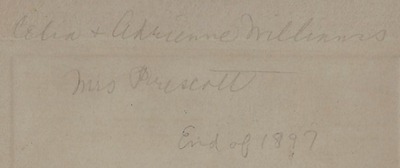 Celia & Adrienne Williams
Mrs Prescott
End of 1897